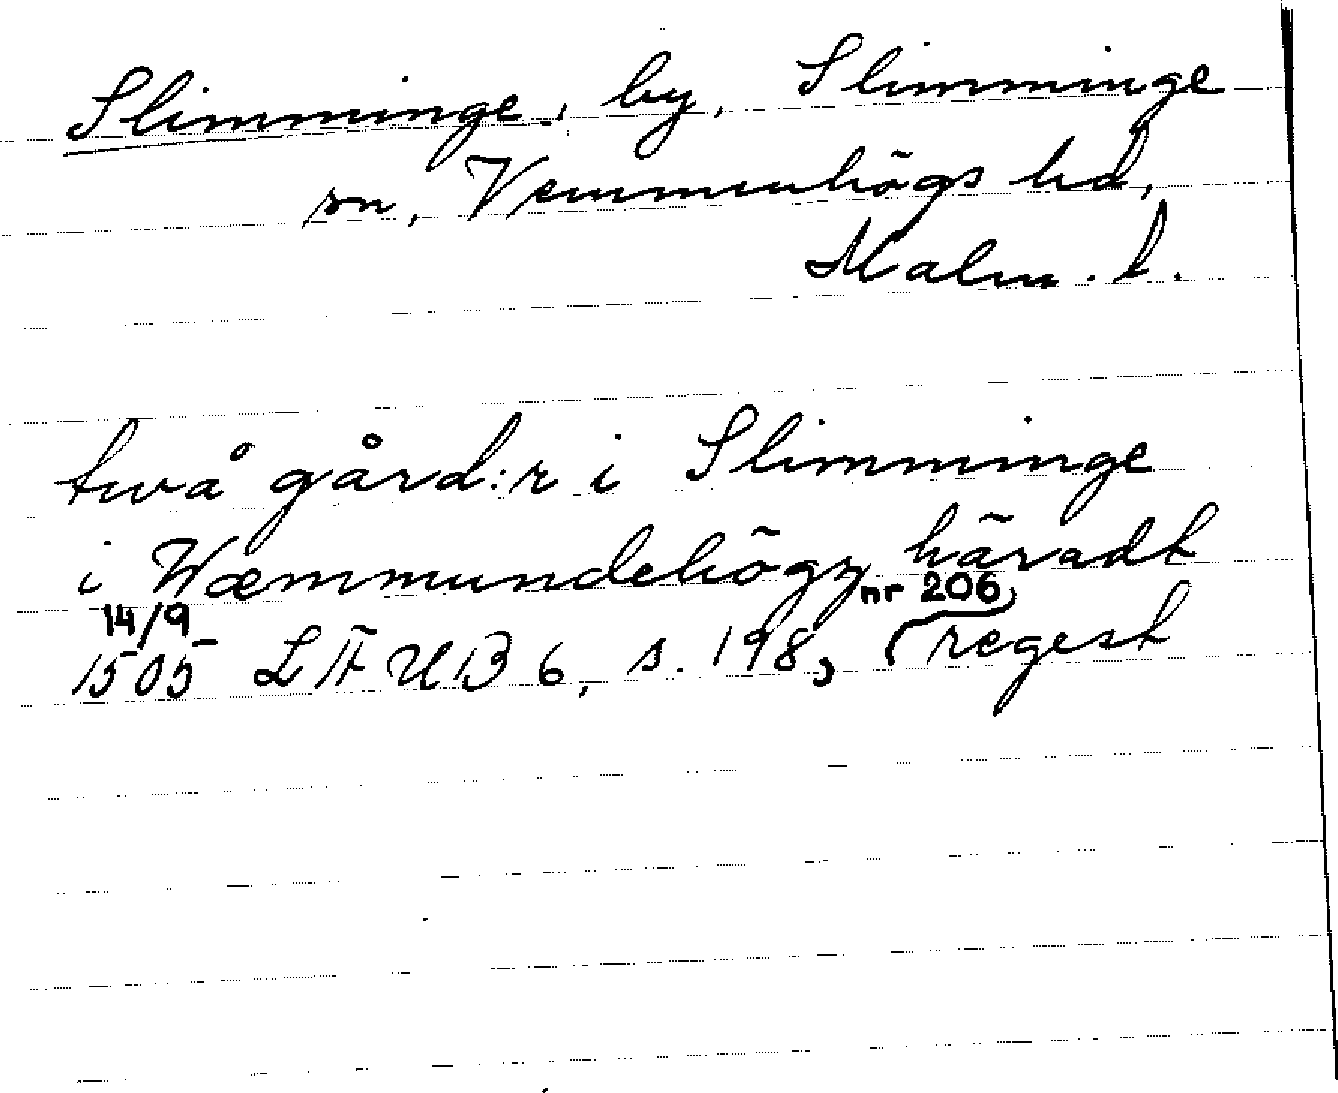 Slimminge, by, Slimminge
sn, Vemmenhögs hd,
Malm. l.
twå gård:r i Slimminge
i Wæmmundehögz häradt
14/9 nr 206
1505 LÆUB 6, s. 198, regest